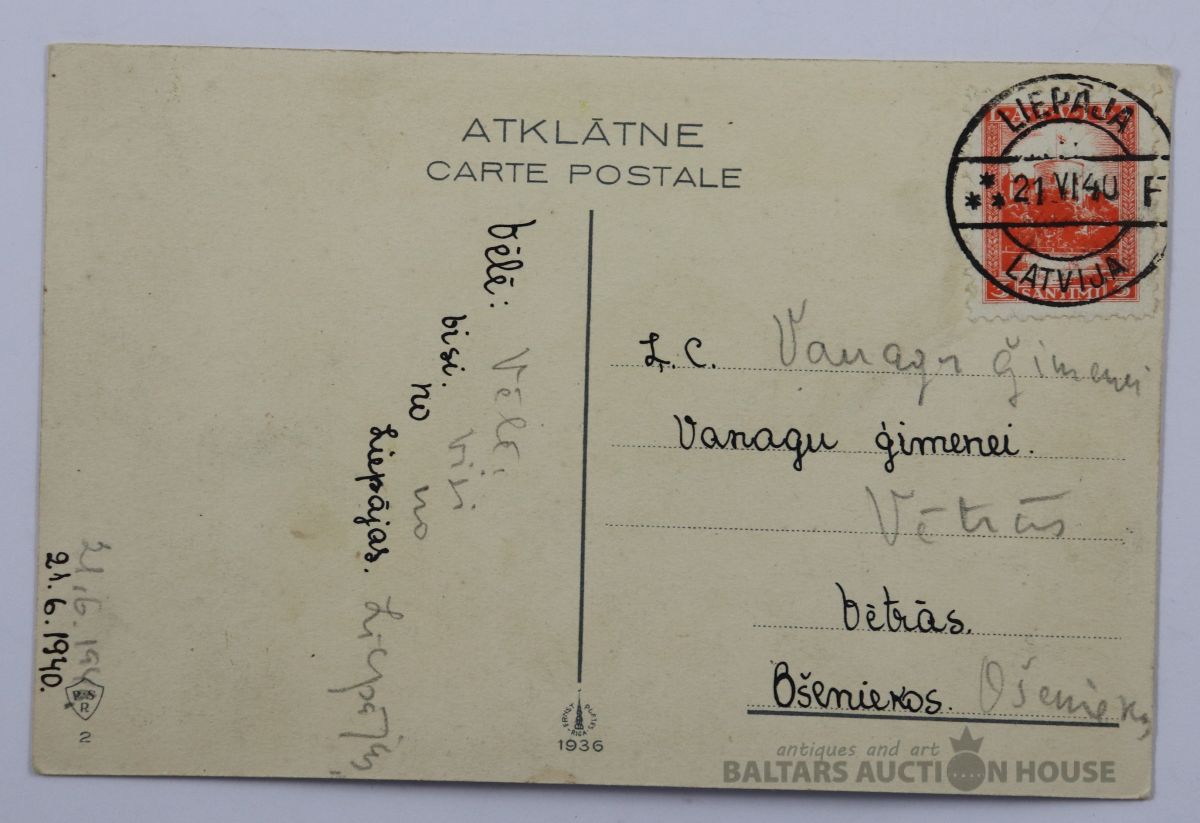 ATKLĀTNE
CARTE POSTALE
LIEPĀJA
21 VI 40 F
LATVIJA
SANTIMU
Vēlē: Vēlē:
visi. visi
no no
Liepājas. Liepājas
21.6.1940
21.6.1940.
Ļ.C. Vanagu ģimenei
Vanagu ģimenei.
Vētrās
Vētrās.
Ošeniekos. Ošeniekos
R S
R
2
ERNST PLATES
RIGA
1936
antiques and art
BALTARS AUCTION HOUSE